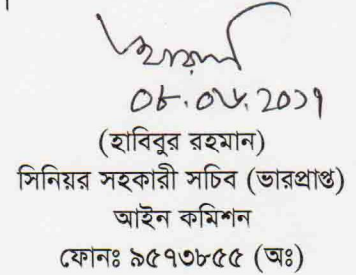 ০৮.০৮.২০১৭
(হাবিবুর রহমান)
সিনিয়র সহকারী সচিব (ভারপ্রাপ্ত)
আইন কমিশন
ফোনঃ ৯৫৭৩৮৫৫ (অঃ)